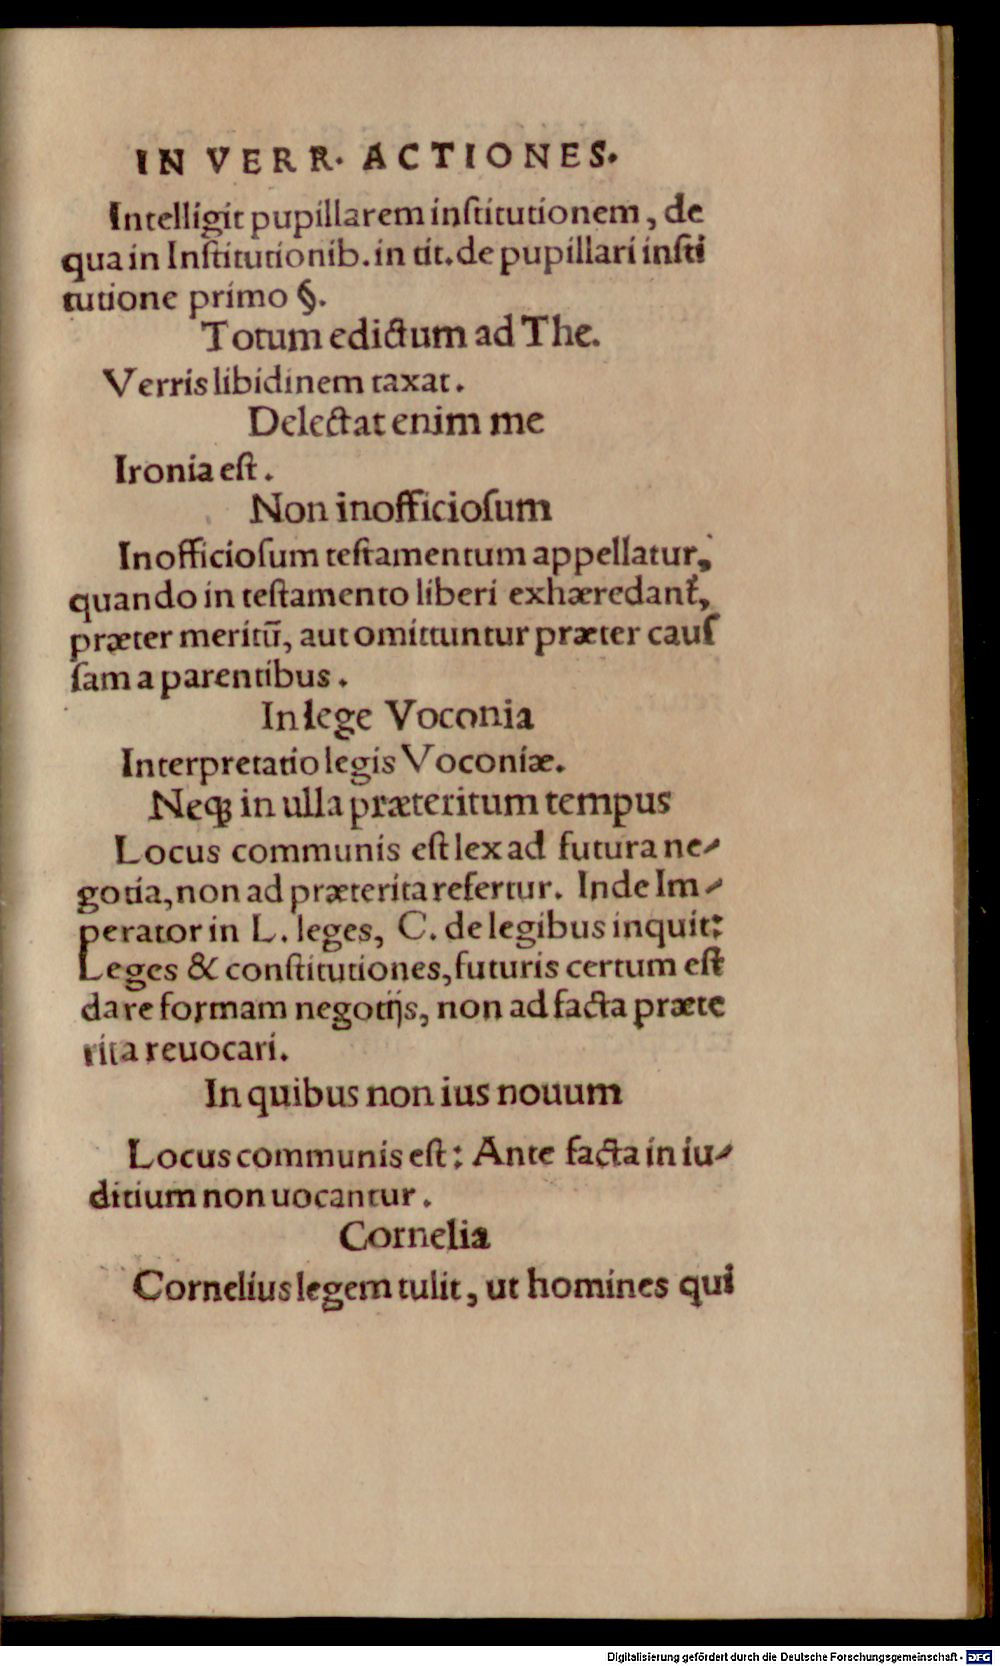 IN VERR. ACTIONES.
Intelligit pupillarem inſtitutionem, de
qua in Inſtitutionib. in tit. de pupillari inſti
tutione primo §.
Totum edictum ad The.
Verris libidinem taxat.
Delectat enim me
Ironia eſt.
Non inofficioſum
Inofficioſum teſtamentum appellatur,
quando in teſtamento liberi exhæredant᷑,
præter meritū, aut omittuntur præter cauſ
ſam a parentibus.
In lege Voconia
Interpretatio legis Voconiæ.
Neqꝫ in ulla præteritum tempus
Locus communis eſt lex ad futura ne-
gotia, non ad præterita refertur. Inde Im-
perator in L. leges, C. de legibus inquit:
Leges & conſtitutiones, futuris certum eſt
dare formam negotijs, non ad facta præte
rita reuocari.
In quibus non ius nouum
Locus communis eſt: Ante facta in iu-
ditium non uocantur.
Cornelia
Cornelius legem tulit, ut homines qui
Digitalisierung gefördert durch die Deutsche Forschungsgemeinschaft - DFG